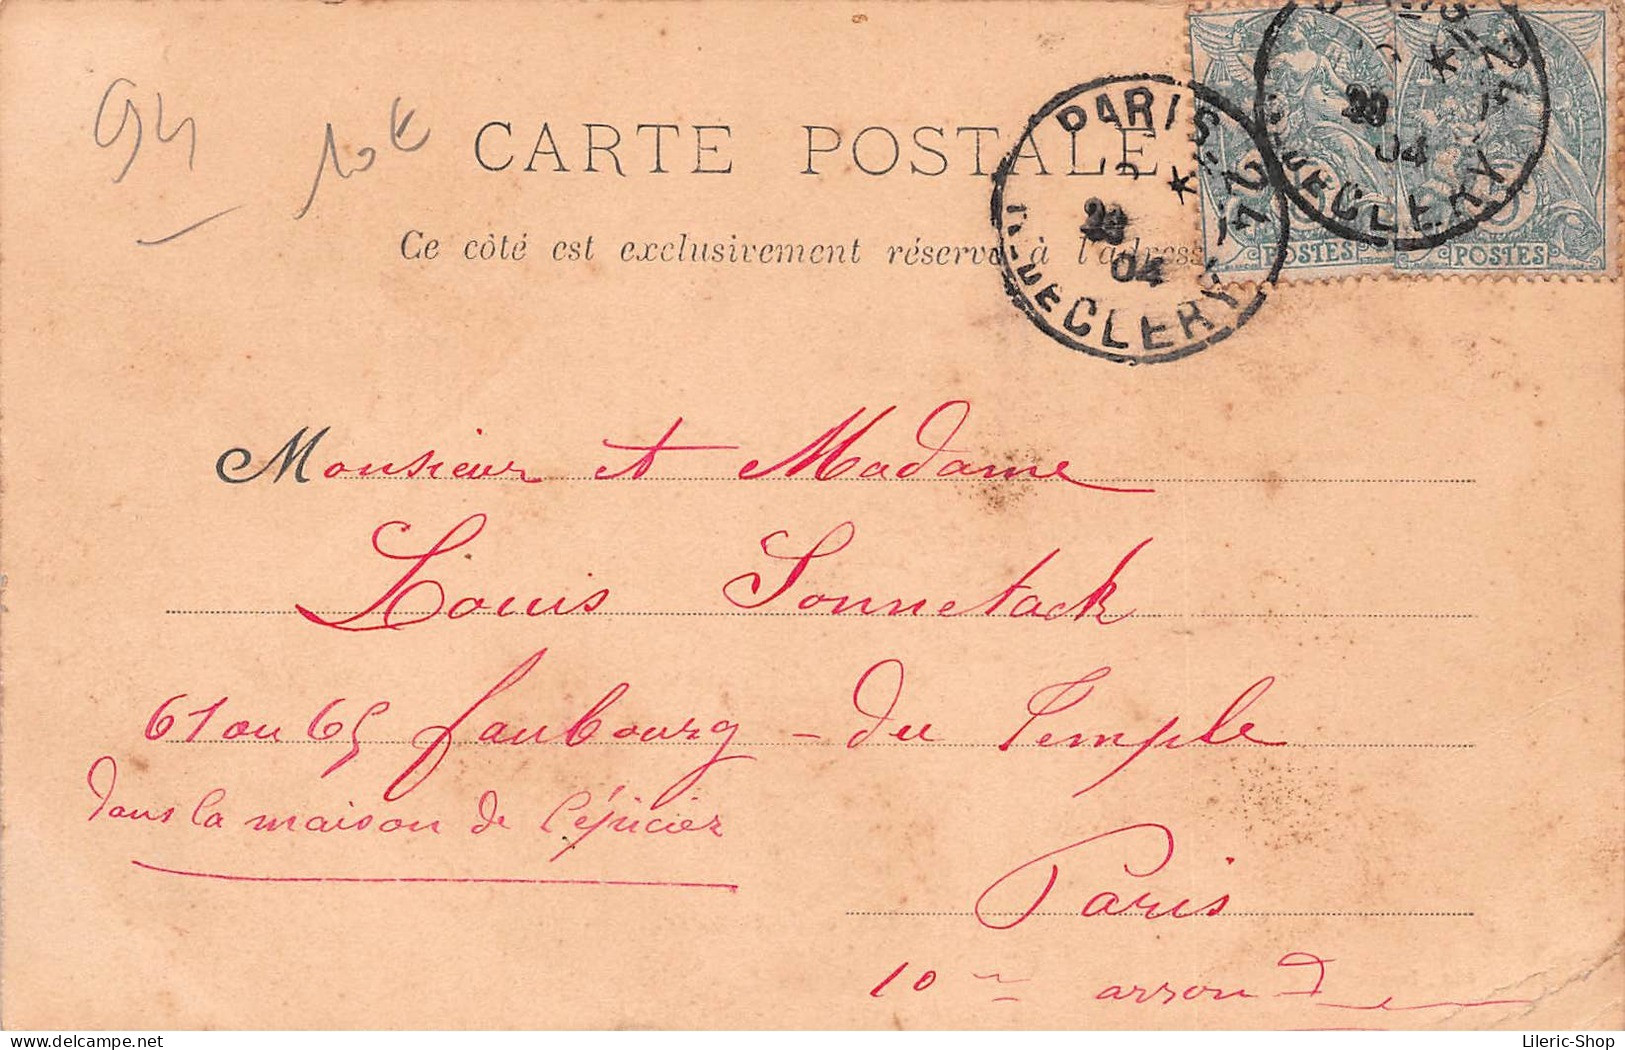 94
10 €
CARTE POSTALE
Ce côté est exclusivement réservé à l'adresse
PARIS 24
R. DE CLERY
04
24
DE CLERY
04
POSTES
POSTES
Monsieur et Madame
Louis Sonnetack
61 ou 65 faubourg - du Temple
dans la maison de l'épicier
Paris
10me arrond
Lileric-Shop